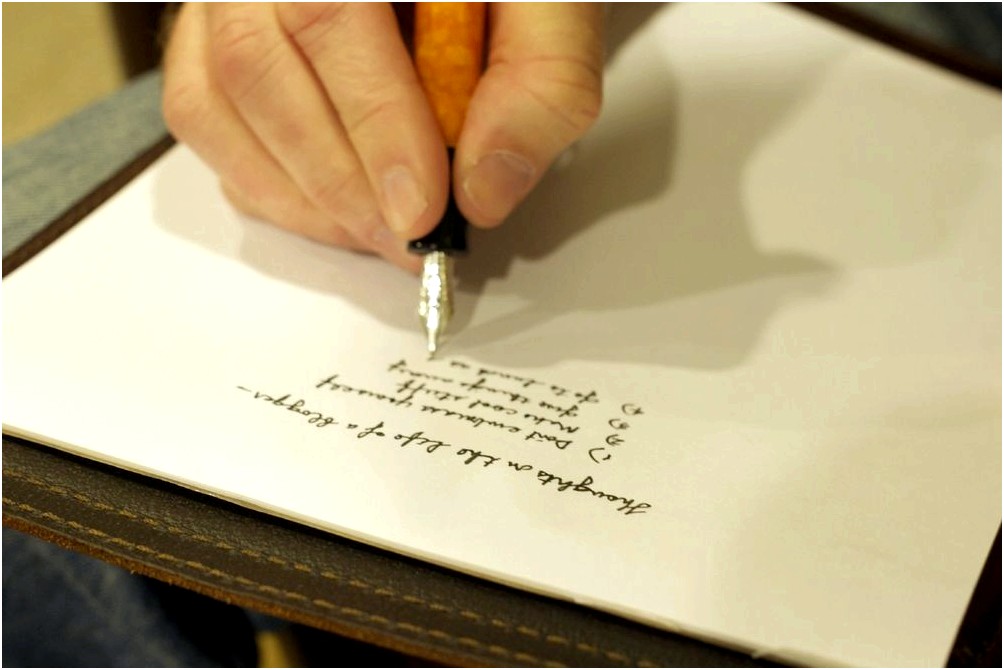 Thoughts on the life of a blogger—
1) Don't embarass yourself
2) Make cool stuff
3) Give things away
4) fo to lunch as